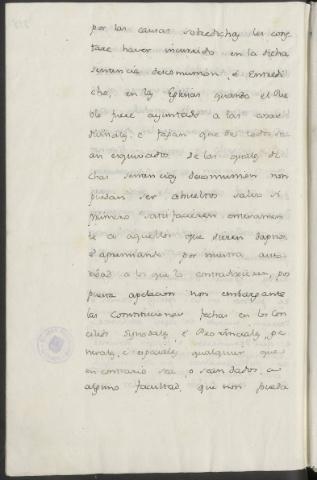 por las causas sobredichas les conste
tare haver incurrido en la dicha
sentencia descomunion, é Entredi
cho, en las Eglesias quando el Pue
blo fuere ayuntado a las oras
Divinales, é fagan que de todos se
an esquivados de las quales di
chas sentencias descomunion non
puedan ser absueltos salvo si
primero satisfacieren enterament
te a aquellos que dieren dapnos
é apremiando por nuestra auto
ridad a los que lo contradixieren, pos
puesta apelacion non embargante
las Constituciones fechas en los Con
cilios Synodales, é Provinciales, ge
nerales, é especiales, qualquier que
en contrario sea, o sean dados, a
alguno facultad, que non pueda